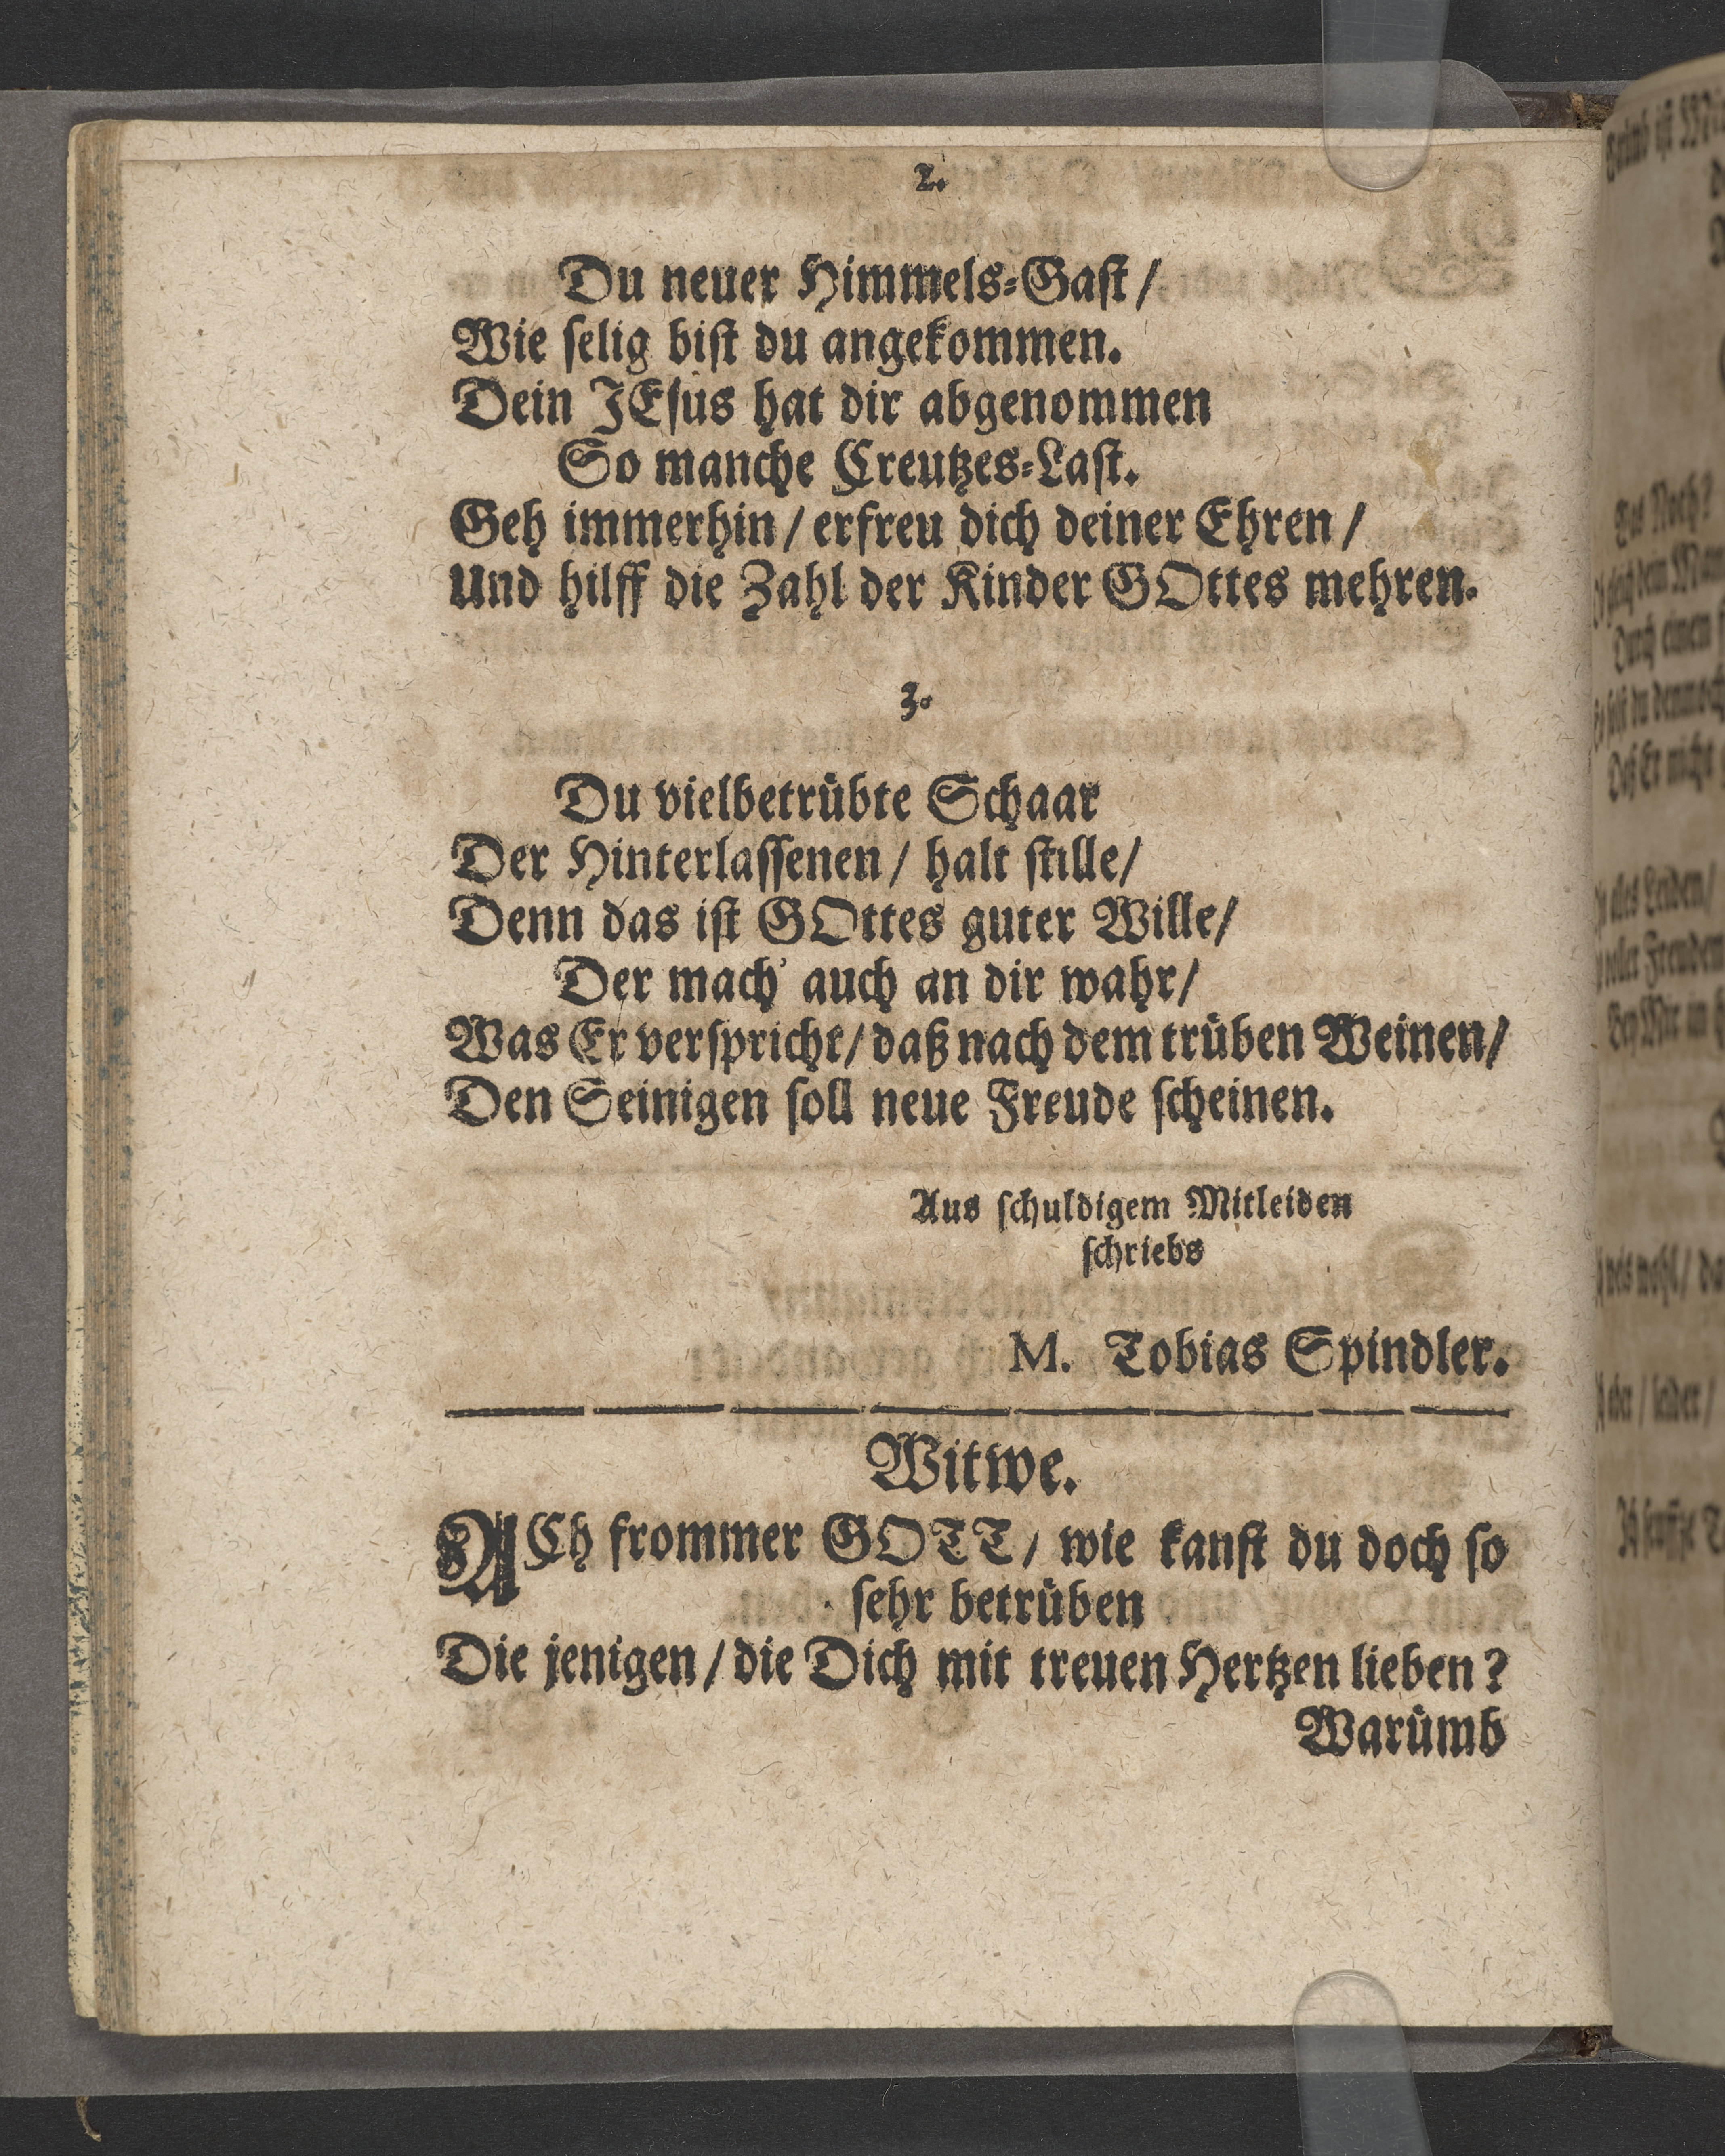 2.
Du neuer Himmels-Gaſt/
Wie ſelig biſt du angekommen.
Dein JEſus hat dir abgenommen
So manche Creutzes-Laſt.
Geh immerhin/ erfreu dich deiner Ehren/
Und hilff die Zahl der Kinder GOttes mehren.
3.
Du vielbetrübte Schaar
Der Hinterlaſſenen/ halt ſtille/
Denn das iſt GOttes guter Wille/
Der mach' auch an dir wahr/
Was Er verſpricht/ daß nach dem trüben Weinen/
Den Seinigen ſoll neue Freude ſcheinen.
Aus ſchuldigem Mitleiden
ſchriebs
M. Tobias Spindler.
Witwe.
ACh frommer GOTT/ wie kanſt du doch ſo
ſehr betrüben
Die jenigen/ die Dich mit treuen Hertzen lieben?
Warümb